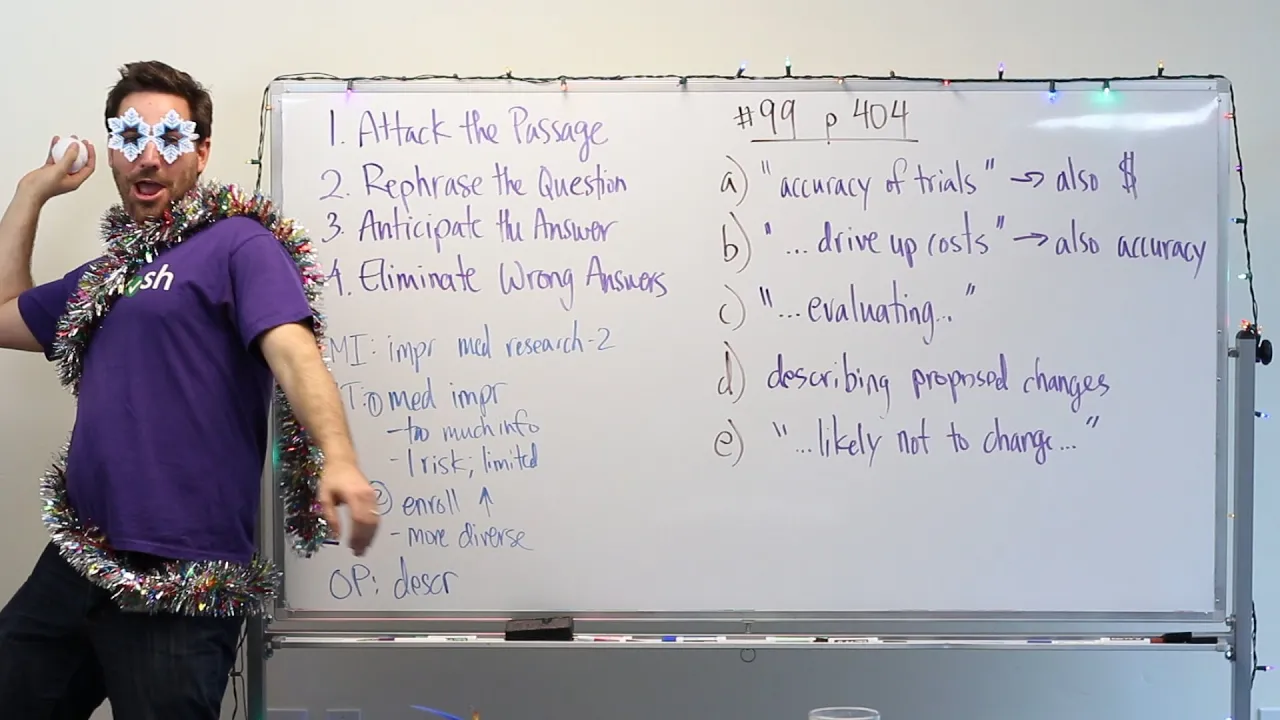 1. Attack the Passage
2. Rephrase the Question
3. Anticipate the Answer
4. Eliminate Wrong Answers
MI: impr med research-2
T: ① med impr
- too much info
- 1 risk; limited
② enroll ↑
- more diverse
OP: descr
#99 p 404
a) "accuracy of trials" → also $
b) "... drive up costs" → also accuracy
c) "... evaluating..."
d) describing proposed changes
e) "...likely not to change..."
sh